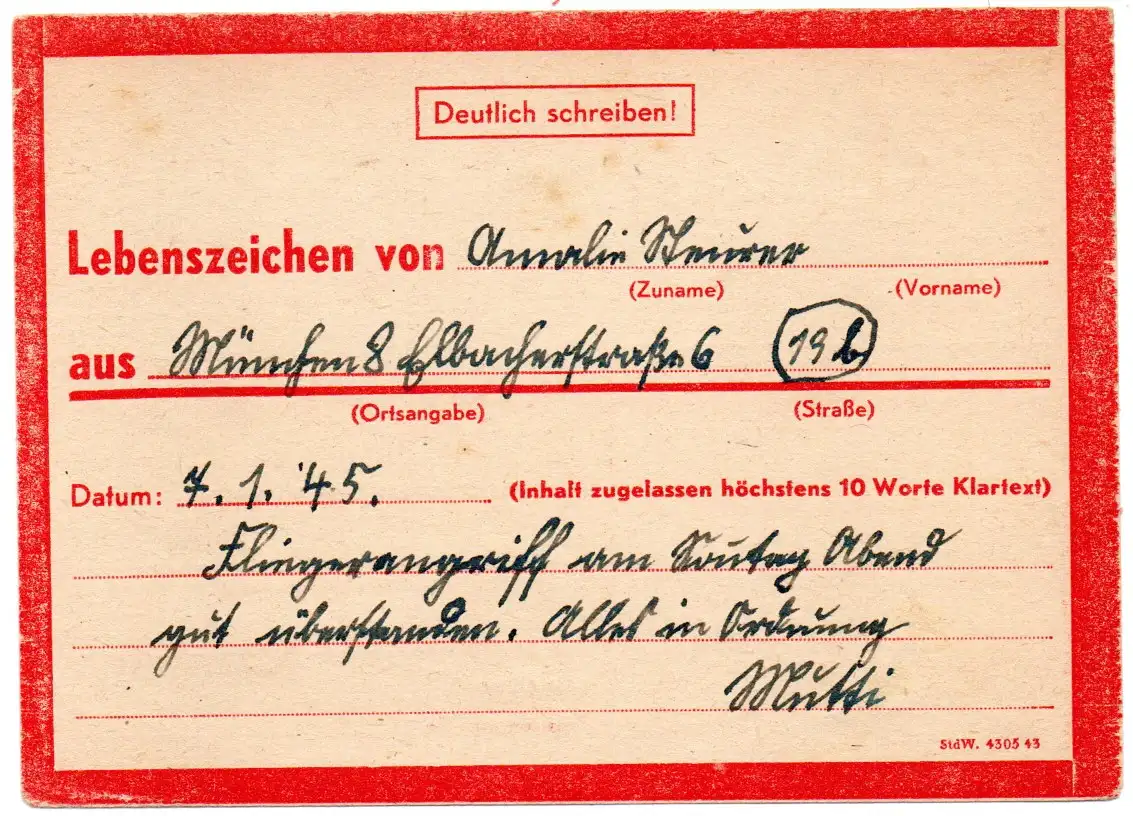 Deutlich schreiben!
Lebenszeichen von Amalie Steurer
(Zuname) (Vorname)
aus München 8 Elbacherstraße 6 (13b)
(Ortsangabe) (Straße)
Datum: 7.1.'45. (Inhalt zugelassen höchstens 10 Worte Klartext)
Fliegerangriff am Sontag Abend
gut überstanden. Alles in Ordnung
Mutti
StdW. 4305 43